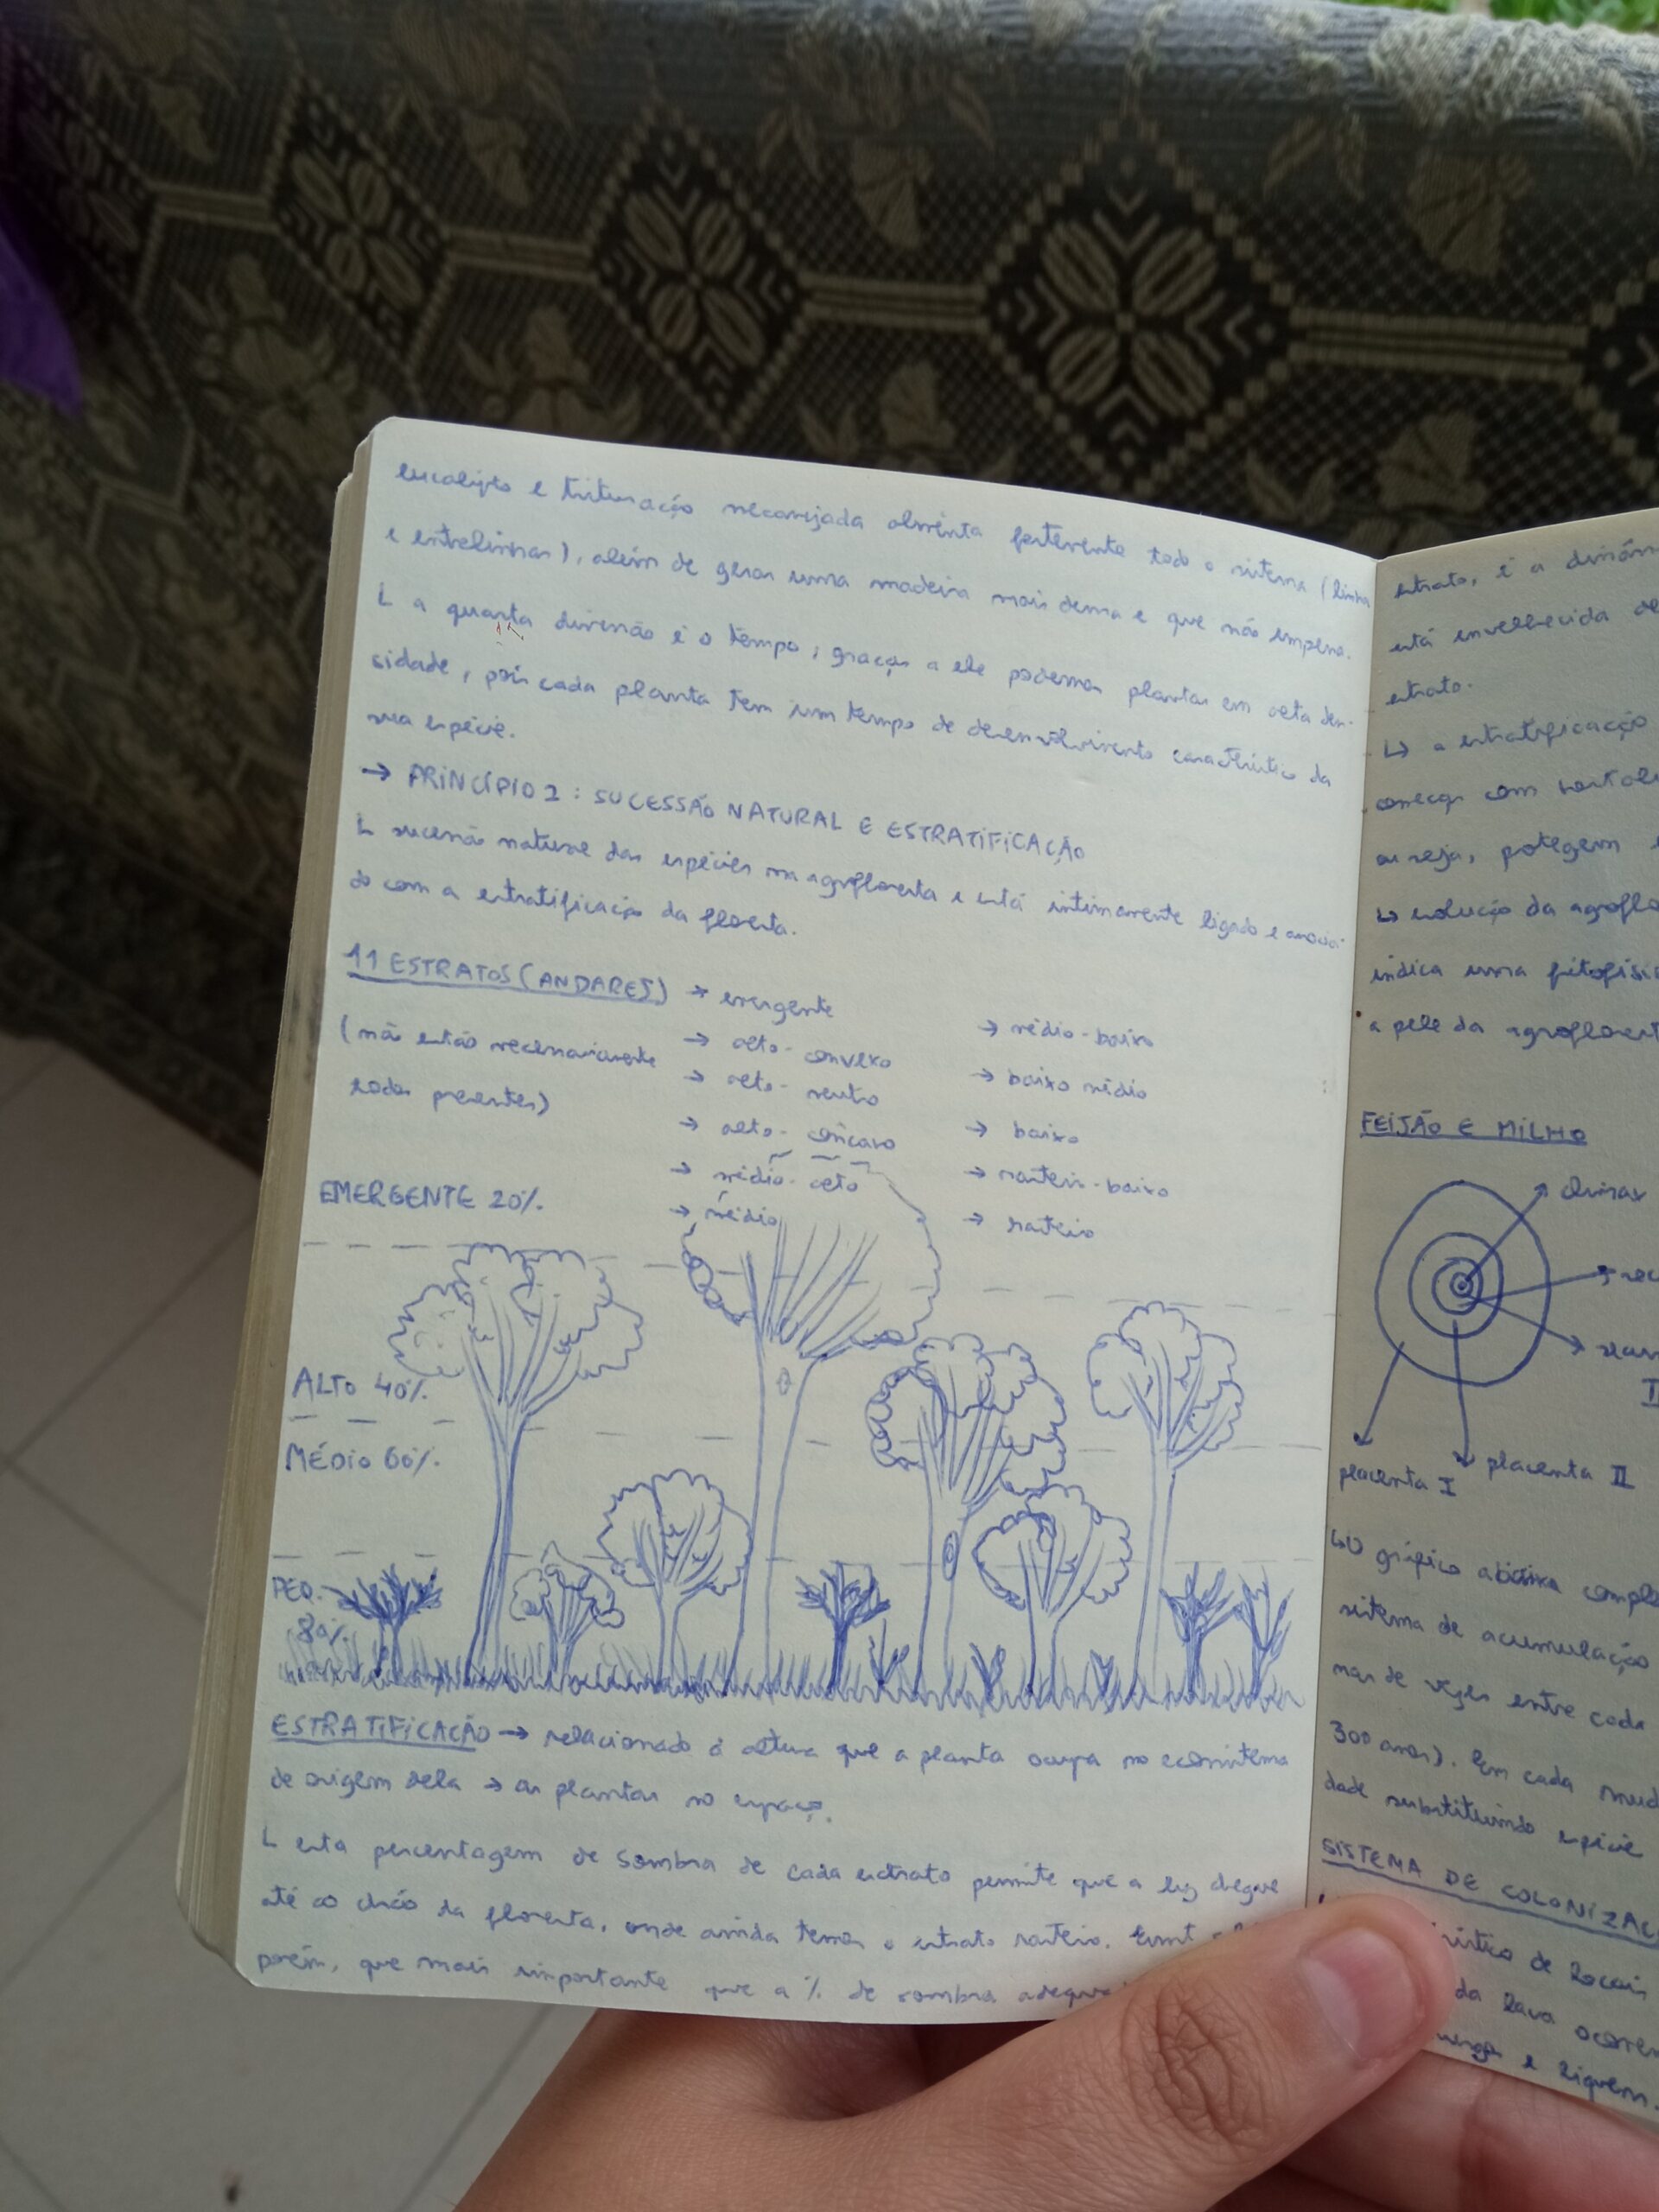 eucalipto e trituração mecanizada alimenta fortemente todo o sistema (linha
e entrelinhas), além de gerar uma madeira mais densa e que não empena.
L a quarta dimensão é o tempo, graças a ele podemos plantar em alta den-
sidade, pois cada planta tem um tempo de desenvolvimento característico da
sua espécie.
→ PRINCÍPIO 2: SUCESSÃO NATURAL E ESTRATIFICAÇÃO
L sucessão natural das espécies na agrofloresta e está intimamente ligado e associa-
do com a estratificação da floresta.
11 ESTRATOS (ANDARES) → emergente
(não estão necessariamente
todos presentes)
→ alto-convexo
→ alto-neutro
→ alto-côncavo
→ médio-alto
→ médio
→ médio-baixo
→ baixo médio
→ baixo
→ rasteiro-baixo
→ rasteio
EMERGENTE 20%.
ALTO 40%.
MÉDIO 60%.
PEQ.
80%.
ESTRATIFICAÇÃO → relacionado à altura que a planta ocupa no ecossistema
de origem dela → as plantas no espaço.
L esta percentagem de sombra de cada estrato permite que a luz chegue
até ao chão da floresta, onde ainda temos o estrato rasteiro.
porém, que mais importante que a % de sombra
estrato, é a
está envelhecida
estrato.
↳ a estratificação
começa com
ou seja, protegem
↳ evolução da
indica uma
a pele da
FEIJÃO E MILHO
climax
placenta I
placenta II
↳ O gráfico abaixo
sistema de acumulação
mas de vezes entre cada
300 anos). Em cada
dade substituindo espécie
SISTEMA DE
de locais
da lava
e liquem.